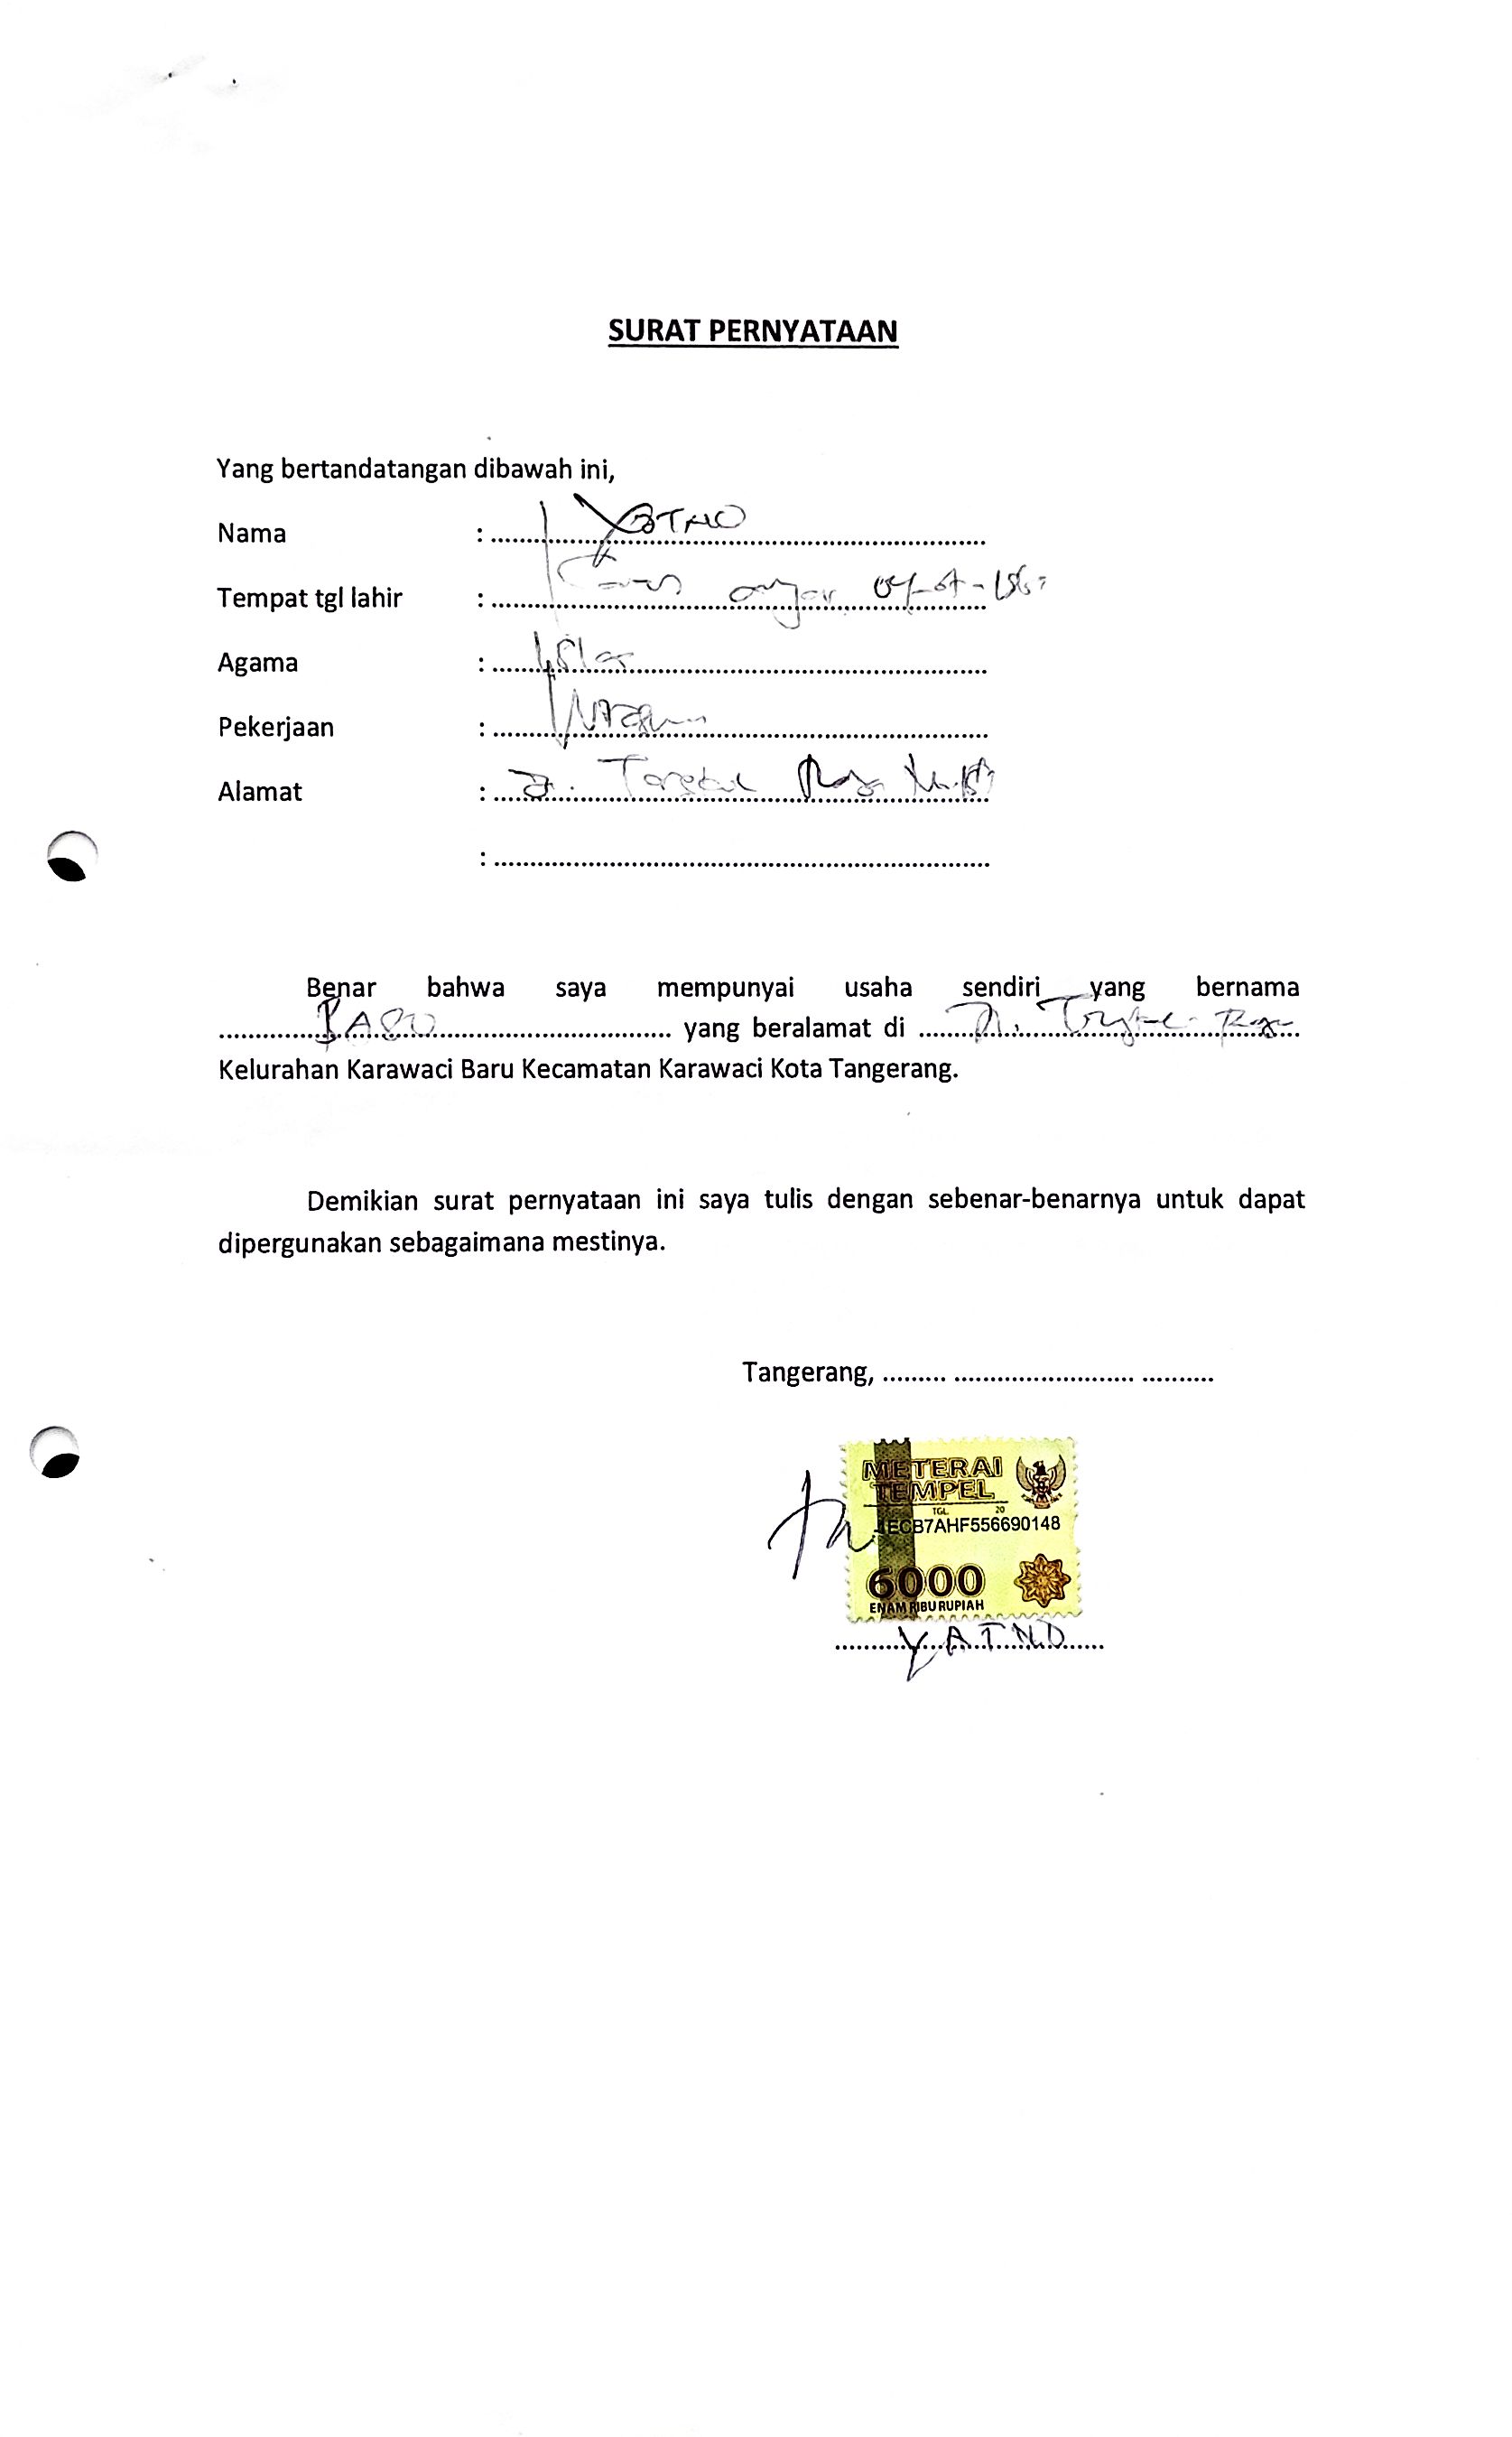 SURAT PERNYATAAN
Yang bertandatangan dibawah ini,
Nama : YATNO
Tempat tgl lahir :
Agama : Islam
Pekerjaan :
Alamat : Jl.
:
Benar bahwa saya mempunyai usaha sendiri yang bernama
BASO yang beralamat di Jl.
Kelurahan Karawaci Baru Kecamatan Karawaci Kota Tangerang.
Demikian surat pernyataan ini saya tulis dengan sebenar-benarnya untuk dapat
dipergunakan sebagaimana mestinya.
Tangerang,
METERAI
TEMPEL
TGL 20
ECB7AHF556690148
6000
ENAM RIBU RUPIAH
YATNO